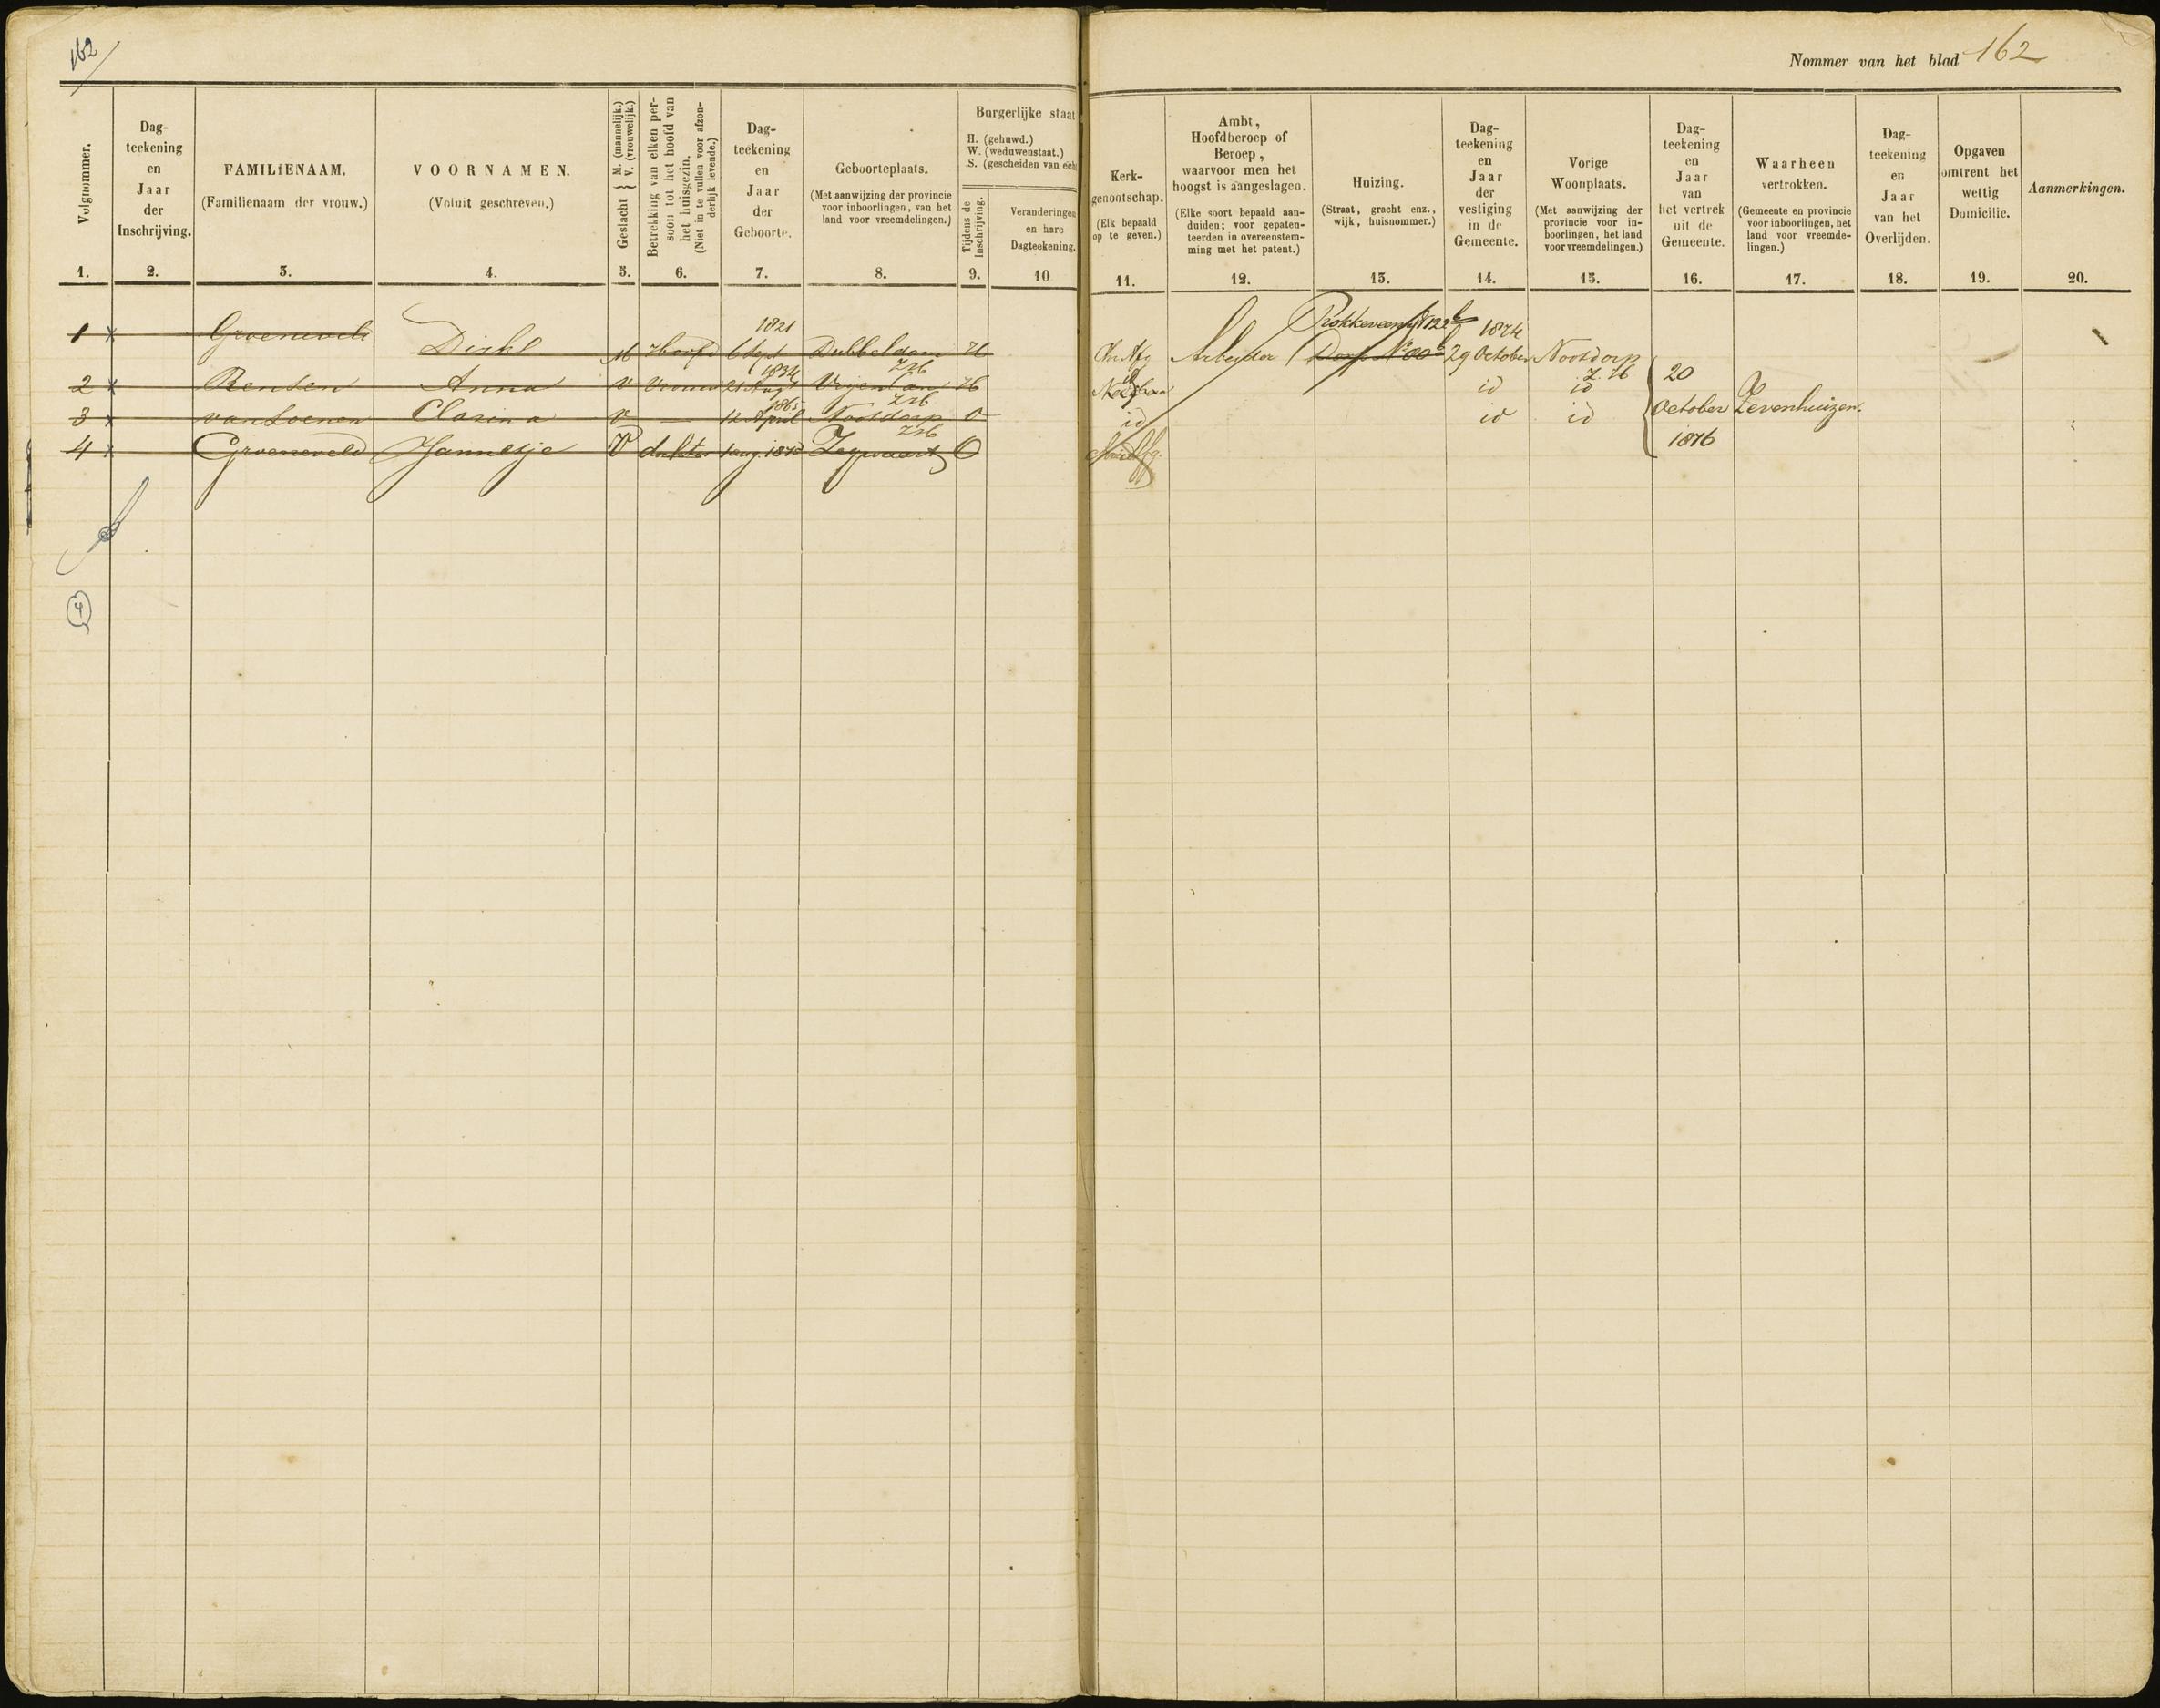 162
Nommer van het blad 162
Volgnommer.
1.
Dag-
teekening
en
Jaar
der
Inschrijving.
2.
FAMILIENAAM.
(Familienaam der vrouw.)
3.
VOORNAMEN.
(Voluit geschreven.)
4.
Geslacht { M. (mannelijk.)
V. (vrouwelijk.)
5.
Betrekking van elken per-
soon tot het hoofd van
het huisgezin.
(Niet in te vullen voor afzon-
derlijk levende.)
6.
Dag-
teekening
en
Jaar
der
Geboorte.
7.
Geboorteplaats.
(Met aanwijzing der provincie
voor inboorlingen, van het
land voor vreemdelingen.)
8.
Burgerlijke staat
H. (gehuwd.)
W. (weduwenstaat.)
S. (gescheiden van echt
Tijdens de
inschrijving.
9.
Veranderingen
en hare
Dagteekening.
10
Kerk-
genootschap.
(Elk bepaald
op te geven.)
11.
Ambt,
Hoofdberoep of
Beroep,
waarvoor men het
hoogst is aangeslagen.
(Elke soort bepaald aan-
duiden; voor gepaten-
teerden in overeenstem-
ming met het patent.)
12.
Huizing.
(Straat, gracht enz.,
wijk, huisnommer.)
13.
Dag-
teekening
en
Jaar
der
vestiging
in de
Gemeente.
14.
Vorige
Woonplaats.
(Met aanwijzing der
provincie voor in-
boorlingen, het land
voor vreemdelingen.)
15.
Dag-
teekening
en
Jaar
van
het vertrek
uit de
Gemeente.
16.
Waarheen
vertrokken.
(Gemeente en provincie
voor inboorlingen, het
land voor vreemde-
lingen.)
17.
Dag-
teekening
en
Jaar
van het
Overlijden.
18.
Opgaven
omtrent het
wettig
Domicilie.
19.
Aanmerkingen.
20.
1 x Groeneveld Dirk M Hoofd 6 Sept 1821 Dubbeldam ZH H Chr Afg Arbeider Dorp 29 October 1874 Nootdorp Z.H
2 x Rensen Anna V Vrouw 21 Aug 1834 ZH H id id
3 x van Loenen Clasina V — 12 April 1865 Nootdorp ZH O id id id
4 x Groeneveld Jannetje V dochter 1 aug. 1875 Zegwaart ZH O
20
October Zevenhuizen.
1876
4